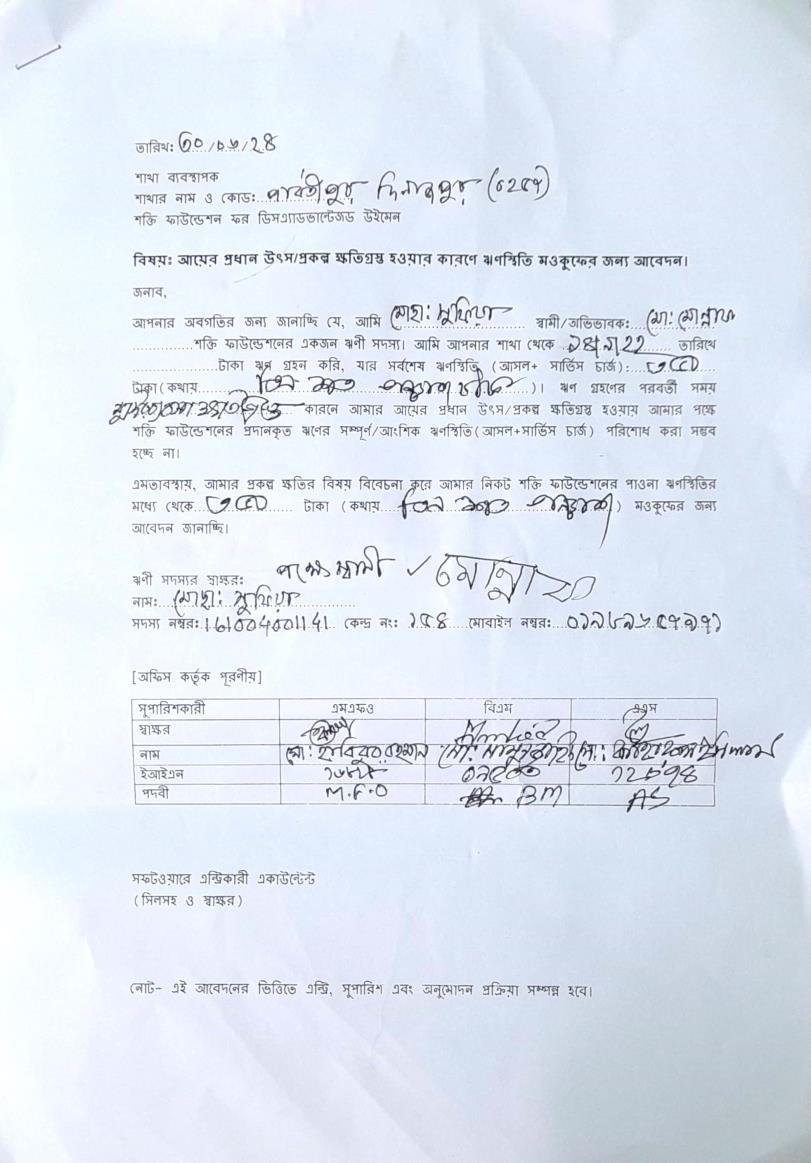 তারিখ: ৩০/০৬/২৪
শাখা ব্যবস্থাপক
শাখার নাম ও কোড: পার্বতীপুর দিনাজপুর (০২৫৭)
শক্তি ফাউন্ডেশন ফর ডিসএ্যাডভান্টেজড উইমেন
বিষয়: আয়ের প্রধান উৎস/প্রকল্প ক্ষতিগ্রস্ত হওয়ার কারণে ঋণস্থিতি মওকুফের জন্য আবেদন।
জনাব,
আপনার অবগতির জন্য জানাচ্ছি যে, আমি মোছা: সুফিয়া স্বামী/অভিভাবক: মো: মোন্নাফ
শক্তি ফাউন্ডেশনের একজন ঋণী সদস্য। আমি আপনার শাখা থেকে তারিখে
টাকা ঋণ গ্রহন করি, যার সর্বশেষ ঋণস্থিতি (আসল+ সার্ভিস চার্জ): ৩৫০
টাকা (কথায় তিন শত পঞ্চাশ টাকা)। ঋণ গ্রহণের পরবর্তী সময়
কারনে আমার আয়ের প্রধান উৎস/প্রকল্প ক্ষতিগ্রস্ত হওয়ায় আমার পক্ষে
শক্তি ফাউন্ডেশনের প্রদানকৃত ঋণের সম্পূর্ণ/আংশিক ঋণস্থিতি(আসল+সার্ভিস চার্জ) পরিশোধ করা সম্ভব
হচ্ছে না।
এমতাবস্থায়, আমার প্রকল্প ক্ষতির বিষয় বিবেচনা করে আমার নিকট শক্তি ফাউন্ডেশনের পাওনা ঋণস্থিতির
মধ্যে থেকে ৩৫০ টাকা (কথায় তিন শত পঞ্চাশ) মওকুফের জন্য
আবেদন জানাচ্ছি।
ঋণী সদস্যর স্বাক্ষর: পক্ষে স্বামী ✓ মোন্নাফ
নাম: মোছা: সুফিয়া
সদস্য নম্বর: 161004001141 কেন্দ্র নং: ১৫৪ মোবাইল নম্বর:
[অফিস কর্তৃক পূরণীয়]
সুপারিশকারী এমএফও বিএম এএস
স্বাক্ষর
নাম মো: হাবিবুর রহমান
ইআইএন
পদবী M.F.O BM AS
সফটওয়ারে এন্ট্রিকারী একাউন্টেন্ট
(সিলসহ ও স্বাক্ষর)
নোট- এই আবেদনের ভিত্তিতে এন্ট্রি, সুপারিশ এবং অনুমোদন প্রক্রিয়া সম্পন্ন হবে।